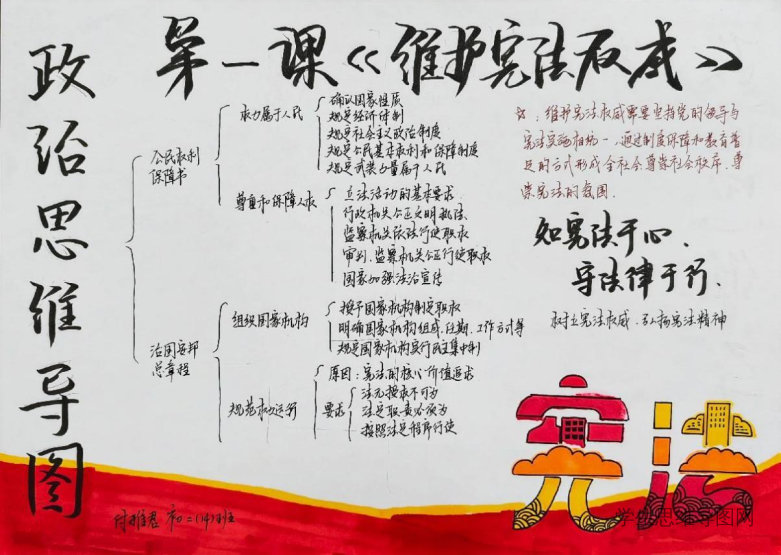 政治思维导图
第一课《维护宪法权威》
公民权利
保障书
权力属于人民
确认国家性质
规定经济体制
规定社会主义政治制度
规定公民基本权利和保障制度
规定武装力量属于人民
尊重和保障人权
立法活动的基本要求
行政机关公正文明执法
监察机关依法行使职权
审判、监察机关公正行使职权
国家加强法治宣传
治国安邦
总章程
组织国家机构
授予国家机构制定职权
明确国家机构组成、任期、工作方式等
规定国家机构实行民主集中制
规范权力运行
原因:宪法的核心价值追求
要求
法无授权不可为
法定职责必须为
按照法定程序行使
☆:维护宪法权威需要坚持党的领导与
宪法实施相统一、通过制度保障和教育普
及的方式形成全社会尊崇社会秩序、尊
崇宪法的氛围.
知宪法于心、
守法律于行.
树立宪法权威、弘扬宪法精神
宪法
初二(14)班
思维导图网